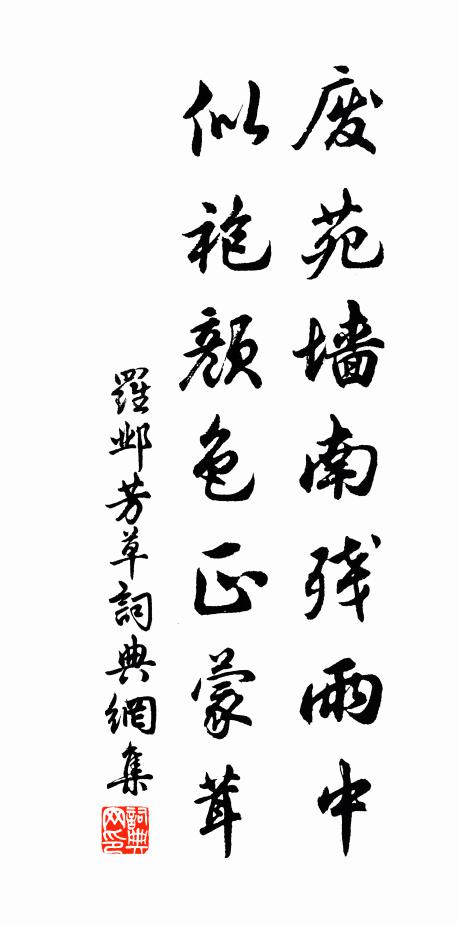 废苑墙南残雨中
似袍颜色正蒙茸
羅邺芳草詞典網集
詞典网印